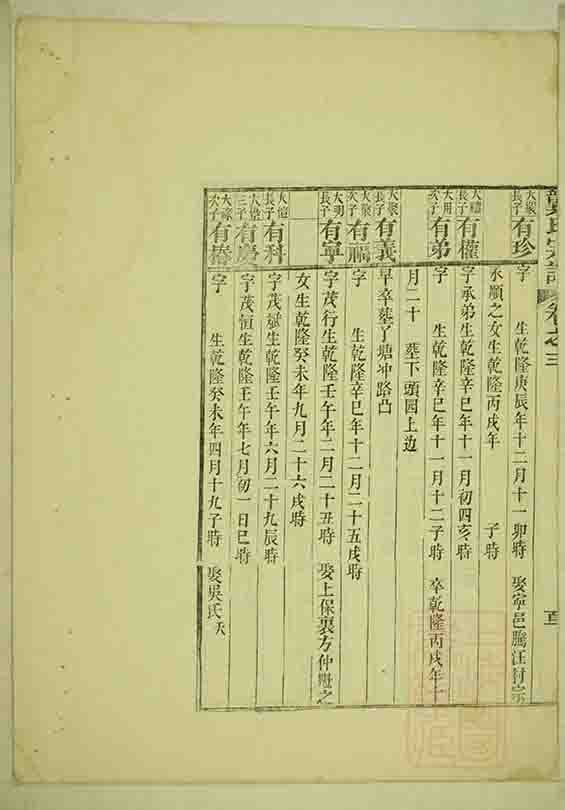 氏宗譜 卷之三
長子 有珍 字 生乾隆庚辰年十二月十一卯時 娶寧邑騰汪村宗
永順之女生乾隆丙戌年 子時
長子 有權 字承弟生乾隆辛巳年十一月初四亥時
次子 有弟 字 生乾隆辛巳年十一月十二子時 卒乾隆丙戌年十
月二十 塟下頭园上边
長子 有義 早卒塟了塘冲路凸
次子 有福 字 生乾隆辛巳年十二月二十五戌時
大明長子 有寧 字茂行生乾隆壬午年二月二十丑時 娶上保裏方仲之
女生乾隆癸未年九月二十六戌時
長子 有科 字茂斌生乾隆壬午年六月二十九辰時
三子 有慶 字茂恒生乾隆壬午年七月初一日巳時
次子 有椿 字 生乾隆癸未年四月十九子時 娶吳氏